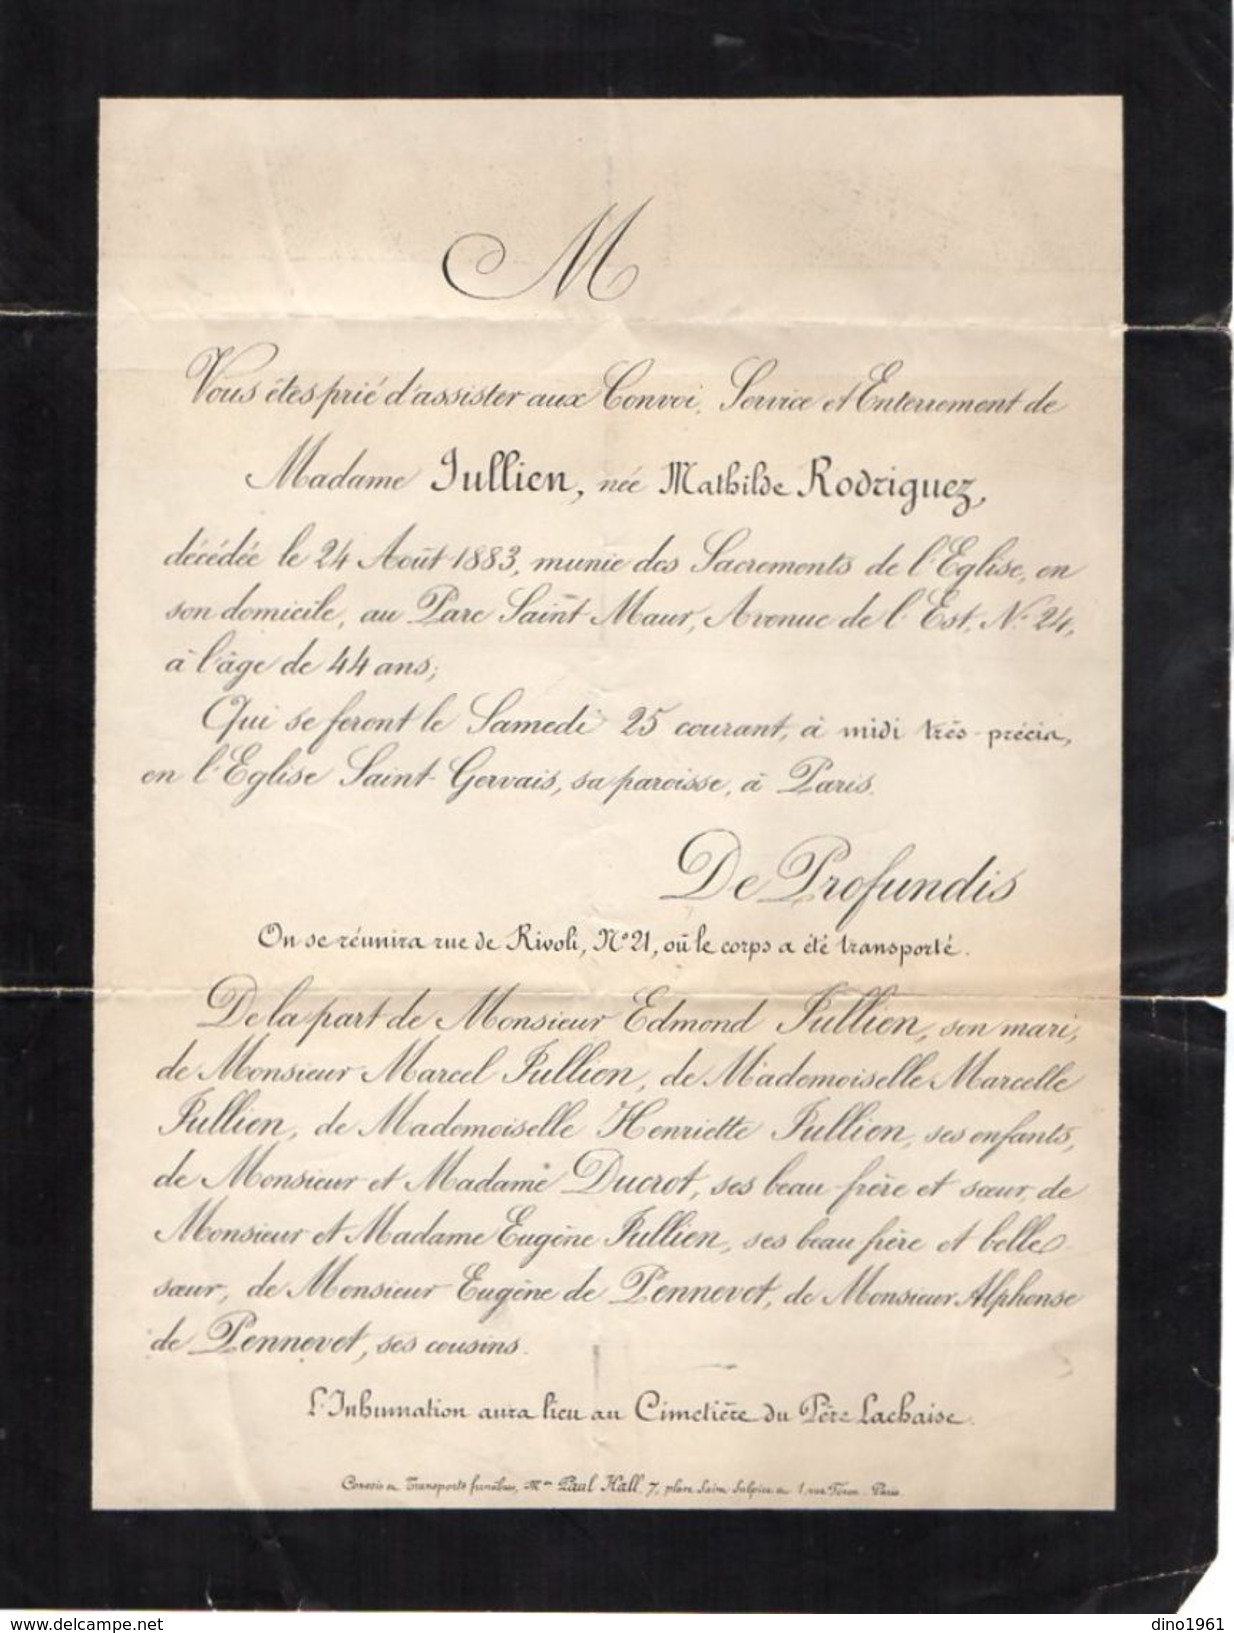 M
Vous êtes prié d'assister aux Convoi, Service et Enterrement de
Madame Jullien, née Mathilde Rodriguez,
décédée le 24 Août 1883, munie des Sacrements de l'Eglise, en
son domicile, au Parc Saint-Maur, Avenue de l'Est, N° 24,
à l'âge de 44 ans;
Qui se feront le Samedi 25 courant, à midi très-précis,
en l'Eglise Saint-Gervais, sa paroisse, à Paris.
De Profundis
On se réunira rue de Rivoli, N° 21, où le corps a été transporté.
De la part de Monsieur Edmond Jullien, son mari,
de Monsieur Marcel Jullien, de Mademoiselle Marcelle
Jullien, de Mademoiselle Henriette Jullien, ses enfants,
de Monsieur et Madame Ducrot, ses beau-frère et sœur, de
Monsieur et Madame Eugène Jullien, ses beau-frère et belle-
sœur, de Monsieur Eugène de Pennevet, de Monsieur Alphonse
de Pennevet, ses cousins.
L'Inhumation aura lieu au Cimetière du Père Lachaise.
Convois et Transports funèbres, Mon Paul Hall, 7, place Saint Sulpice et 1, rue Férou. Paris.
delcampe.net
dino1961